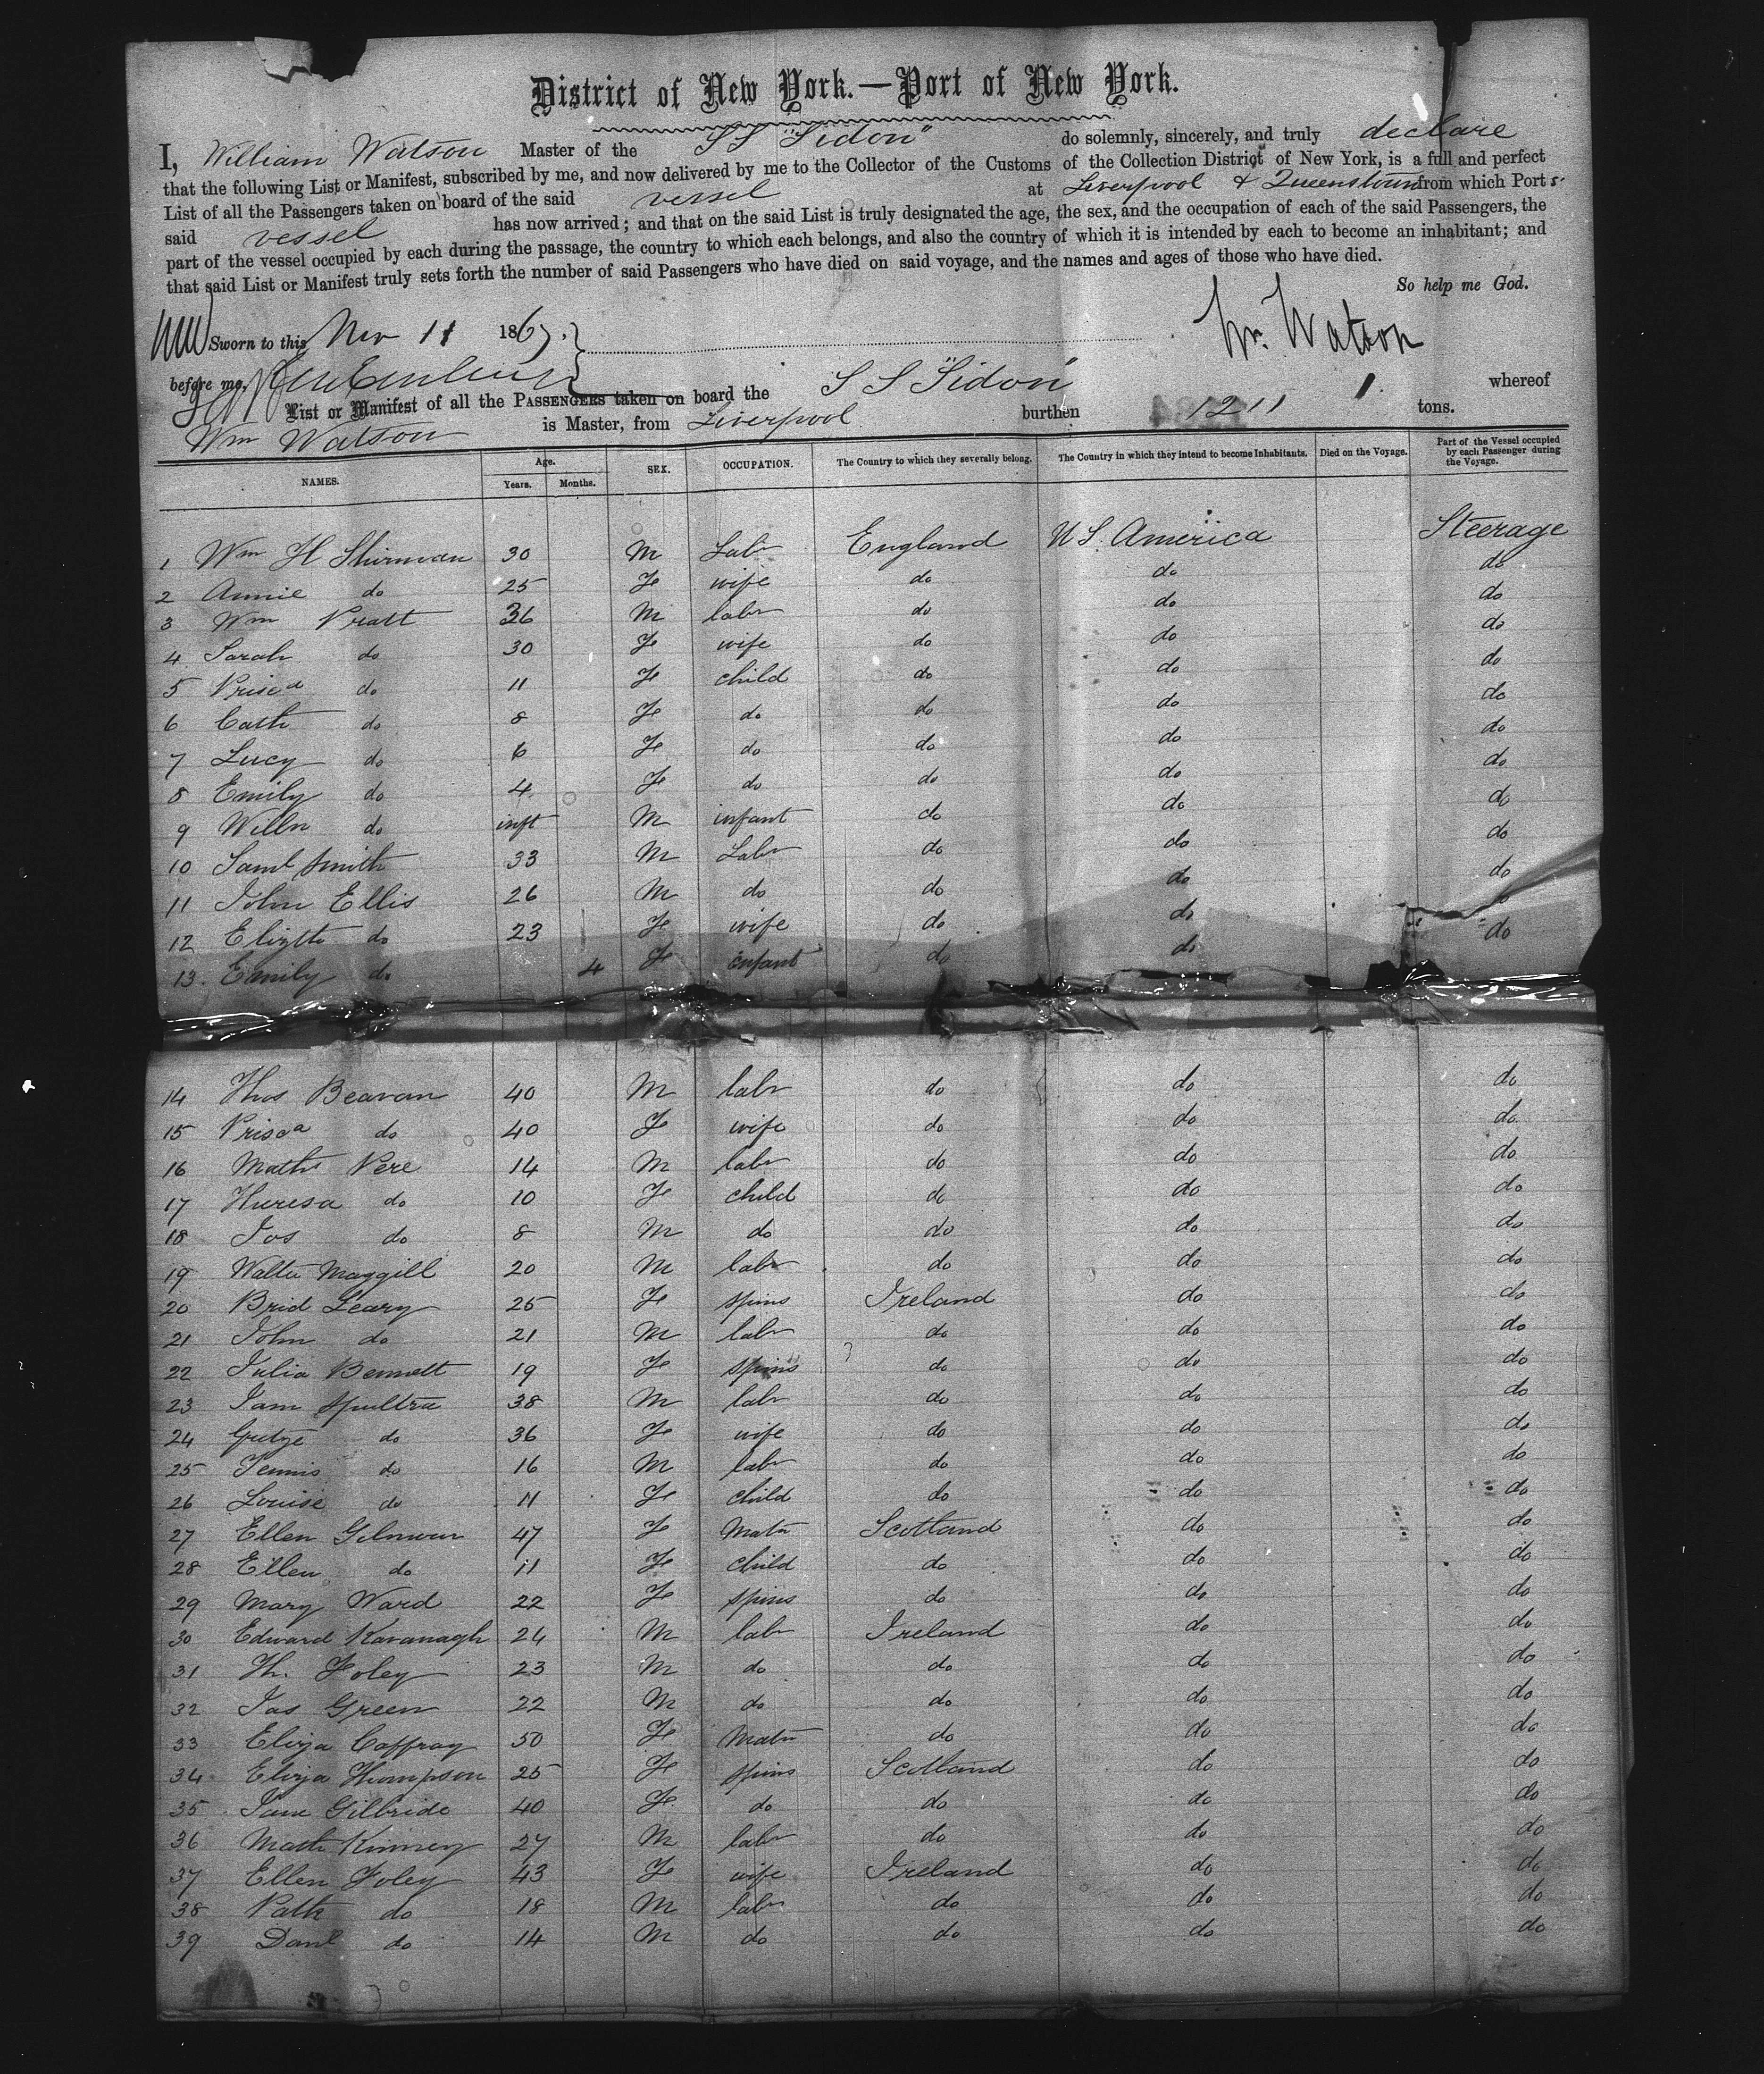 District of New York.—Port of New York.
I, William Watson Master of the SS "Sidon" do solemnly, sincerely, and truly declare
that the following List or Manifest, subscribed by me, and now delivered by me to the Collector of the Customs of the Collection District of New York, is a full and perfect
List of all the Passengers taken on board of the said vessel at Liverpool & Queenstown from which Port s
said vessel has now arrived; and that on the said List is truly designated the age, the sex, and the occupation of each of the said Passengers, the
part of the vessel occupied by each during the passage, the country to which each belongs, and also the country of which it is intended by each to become an inhabitant; and
that said List or Manifest truly sets forth the number of said Passengers who have died on said voyage, and the names and ages of those who have died.
So help me God.
Sworn to this Nov 11 1867. Wm. Watson
before me,
List or Manifest of all the PASSENGERS taken on board the SS "Sidon" whereof
Wm Watson is Master, from Liverpool burthen 1211 tons.
NAMES. Age. Years. Months. SEX. OCCUPATION. The Country to which they severally belong. The Country in which they intend to become Inhabitants. Died on the Voyage. Part of the Vessel occupied by each Passenger during the Voyage.
1 Wm H Shirman 30 M Labr England U S. America Steerage
2 Annie do 25 Fe wife do do do
3 Wm Pratt 36 M labr do do do
4 Sarah do 30 Fe wife do do do
5 Prisca do 11 Fe child do do do
6 Cath do 8 Fe do do do do
7 Lucy do 6 Fe do do do do
8 Emily do 4 Fe do do do do
9 Willm do inft M infant do do do
10 Saml Smith 33 M Labr do do do
11 John Ellis 26 M do do do do
12 Elizth do 23 Fe wife do do do
13. Emily do 4 Fe infant do do do
14 Thos Beavan 40 M labr do do do
15 Prisca do 40 Fe wife do do do
16 Mathw Pere 14 M labr do do do
17 Theresa do 10 Fe child do do do
18 Jos do 8 M do do do do
19 Walter Maggill 20 M labr do do do
20 Brid Leary 25 Fe spins Ireland do do
21 John do 21 M labr do do do
22 Julia Bennett 19 Fe spins do do do
23 Jam 38 M labr do do do
24 do 36 Fe wife do do do
25 do 16 M labr do do do
26 Louise do 11 Fe child do do do
27 Ellen Gilmour 47 Fe Matn Scotland do do
28 Ellen do 11 Fe child do do do
29 Mary Ward 22 Fe spins do do do
30 Edward Kavanagh 24 M labr Ireland do do
31 Th. Foley 23 M do do do do
32 Jas Green 22 M do do do do
33 Eliza Caffray 50 Fe Matn do do do
34 Eliza Thompson 25 Fe spins Scotland do do
35 Jane Gilbride 40 Fe do do do do
36 Math Kinney 27 M labr do do do
37 Ellen Foley 43 Fe wife Ireland do do
38 Patk do 18 M labr do do do
39 Danl do 14 M do do do do